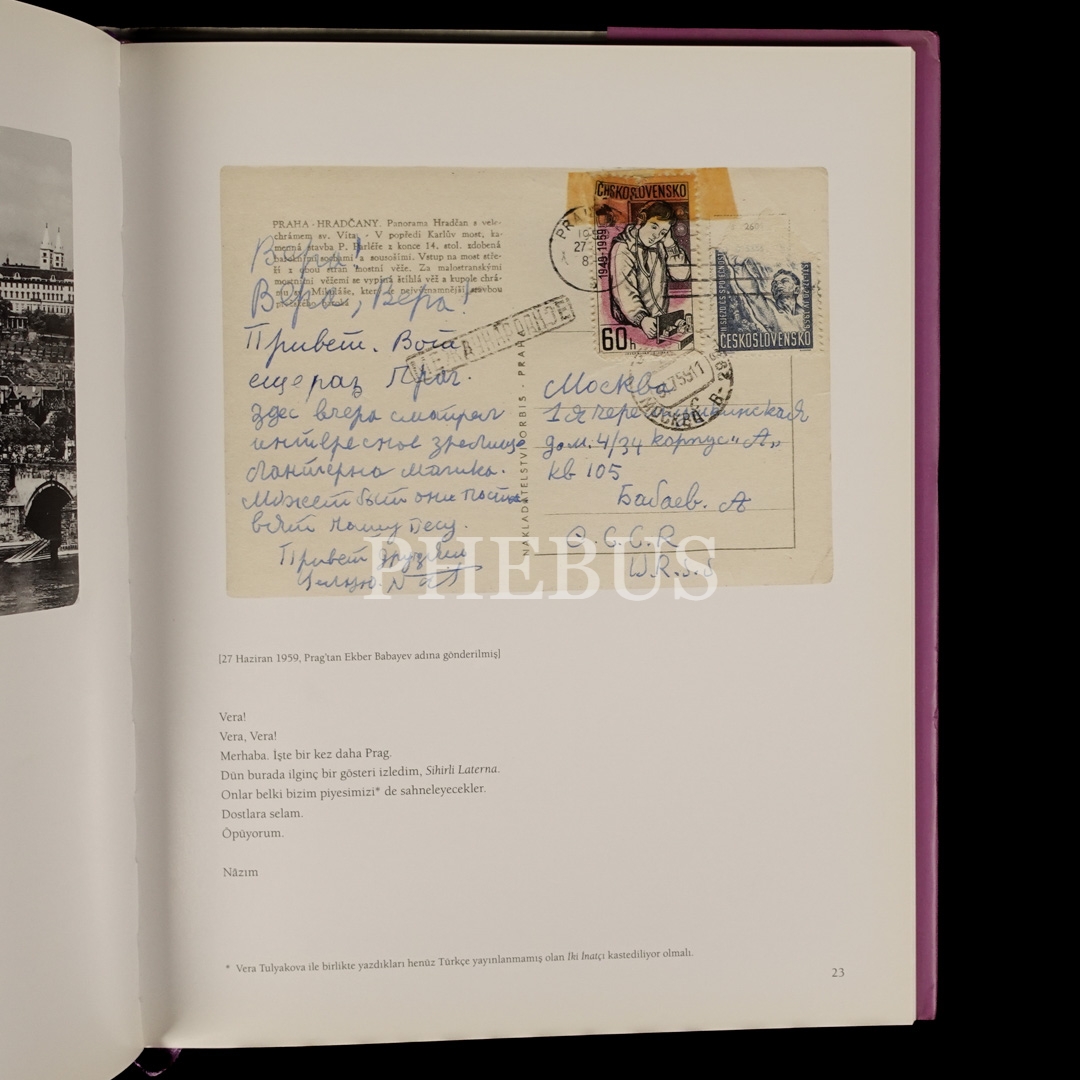 PRAHA - HRADČANY. Panorama Hradčan s vele-
chrámem sv. Víta. - V popředí Karlův most, ka-
menná stavba P. Parléře z konce 14. stol. zdobená
sochami a sousošími. Vstup na most stře-
ží z obou stran mostní věže. Za malostranskými
mostními věžemi se vypíná štíhlá věž a kupole chrá-
mu sv. Mikuláše, který je nejvýznamnější stavbou
Вера!
Вера, Вера!
Привет. Вот
еще раз Прага.
здес вчера смотрел
интересное зрелище
Лантерна магика.
Может быт они поста
вят нашу песу.
Привет друзям
Целую.
МЕЖДУНАРОДНОЕ
NAKLADATELSTVÍ ORBIS - PRAHA
PRAHA
ČESKOSLOVENSKO
1949-1959
60h
ČESKOSLOVENSKO
МОСКВА
Москва
1я Черемушкинская
дом. 4/34 корпус „А„
кв 105
Бабаев. А
С.С.С.Р
U.R.S.S
PHEBUS
[27 Haziran 1959, Prag'tan Ekber Babayev adına gönderilmiş]
Vera!
Vera, Vera!
Merhaba. İşte bir kez daha Prag.
Dün burada ilginç bir gösteri izledim, Sihirli Laterna.
Onlar belki bizim piyesimizi* de sahneleyecekler.
Dostlara selam.
Öpüyorum.
Nâzım
* Vera Tulyakova ile birlikte yazdıkları henüz Türkçe yayınlanmamış olan İki İnatçı kastediliyor olmalı.
23